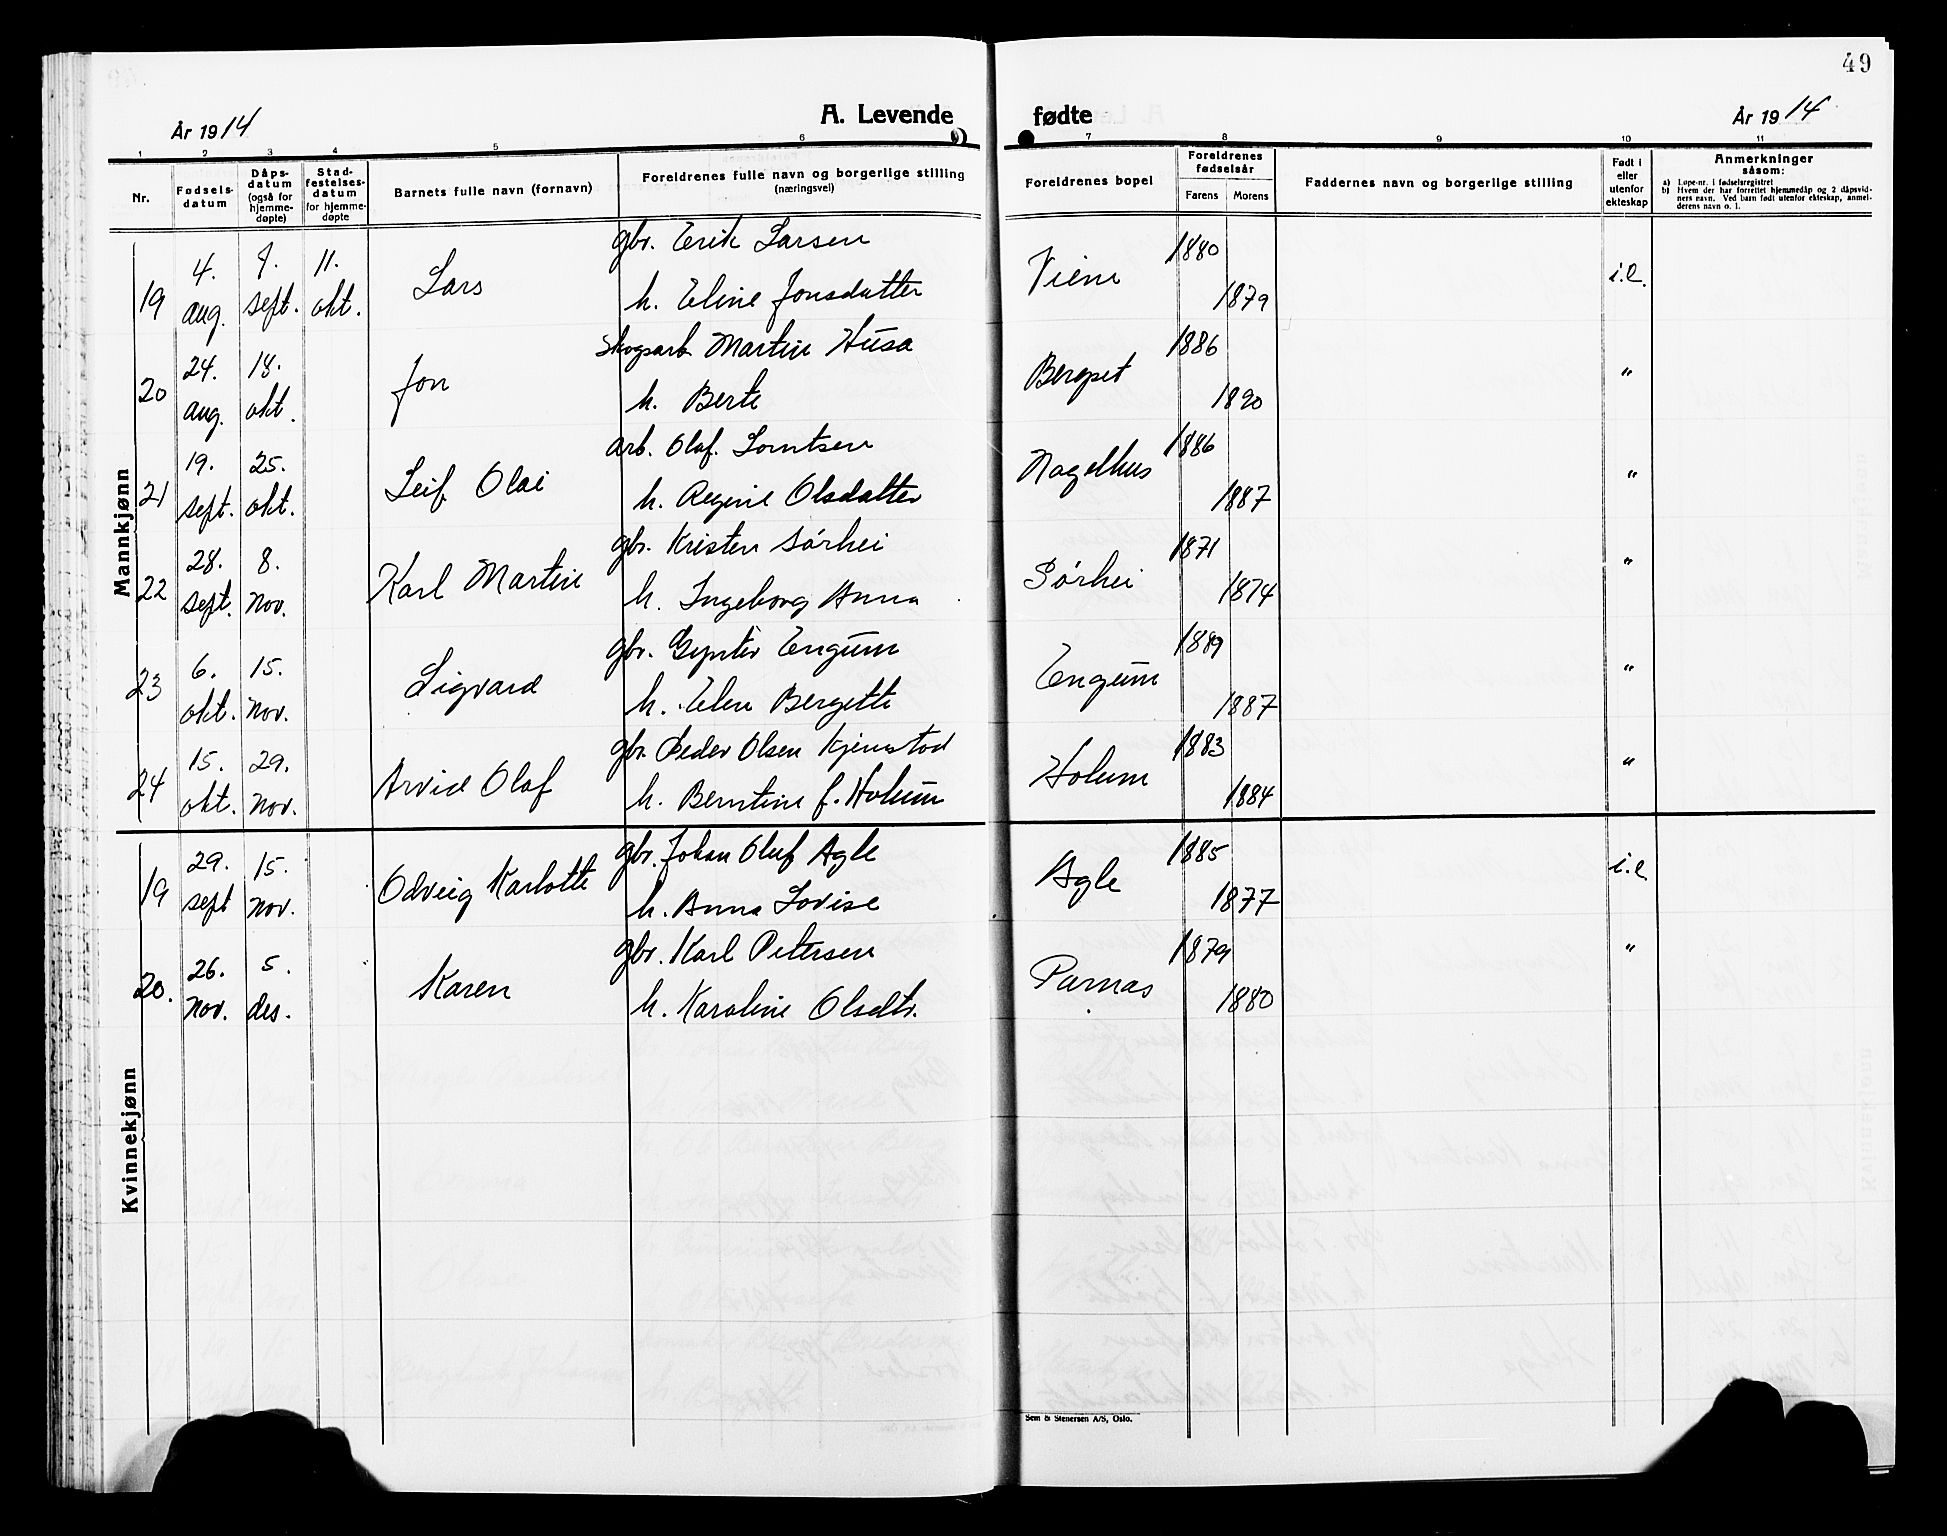 49
År 1914 A. Levende fødte År 1914
1 2 3 4 5 6 7 8 9 10 11
Nr. Fødsels-datum Dåps-datum (også for hjemme-døpte) Stad-festelses-datum for hjemme-døpte Barnets fulle navn (fornavn) Foreldrenes fulle navn og borgerlige stilling (næringsvei) Foreldrenes bopel Foreldrenes fødselsår Farens Morens Faddernes navn og borgerlige stilling Født i eller utenfor ekteskap Anmerkninger såsom:
a) Løpe-nr. i fødselsregistret
b) Hvem der har forrettet hjemmedåp og 2 dåpsvidners navn. Ved barn født utenfor ekteskap, anmelderens navn o. l.
Mannkjønn
19 4. aug. 9. sept. 11. okt. Lars gbr. Erik Larsen Viem 1880 i.e.
h. Eline Jonsdatter 1879
20 24. aug. 18. okt. Jon skogsarb. Martin Husa 1886 "
h. Berte 1890
21 19. sept. 25. okt. Leif Olai arb. Olaf. Lorntsen Nagelhus 1886 "
h. Regine Olsdatter 1887
22 28. sept. 8. nov. Karl Martin gbr. Kristen Sørhei Sørhei 1871 "
h. Ingeborg Anna 1874
23 6. okt. 15. nov. Sigvard gbr. Engum Engum 1889 "
h. Elen Bergette 1887
24 15. okt. 29. nov. Arvid Olaf gbr. Peder Olsen Kjenstad Holum 1883 "
h. Berntine f. Holum 1884
Kvinnekjønn
19 29. sept 15. nov. Odveig Karlotte gbr. Johan Oluf Agle Agle 1885 i.e.
h. Anna Lovise 1877
20. 26. nov. 5. des. Karen gbr. Karl Petersen Parnas 1879 "
h. Karoline Olsdtr. 1880
Sem & Stenersen A/S, Oslo.